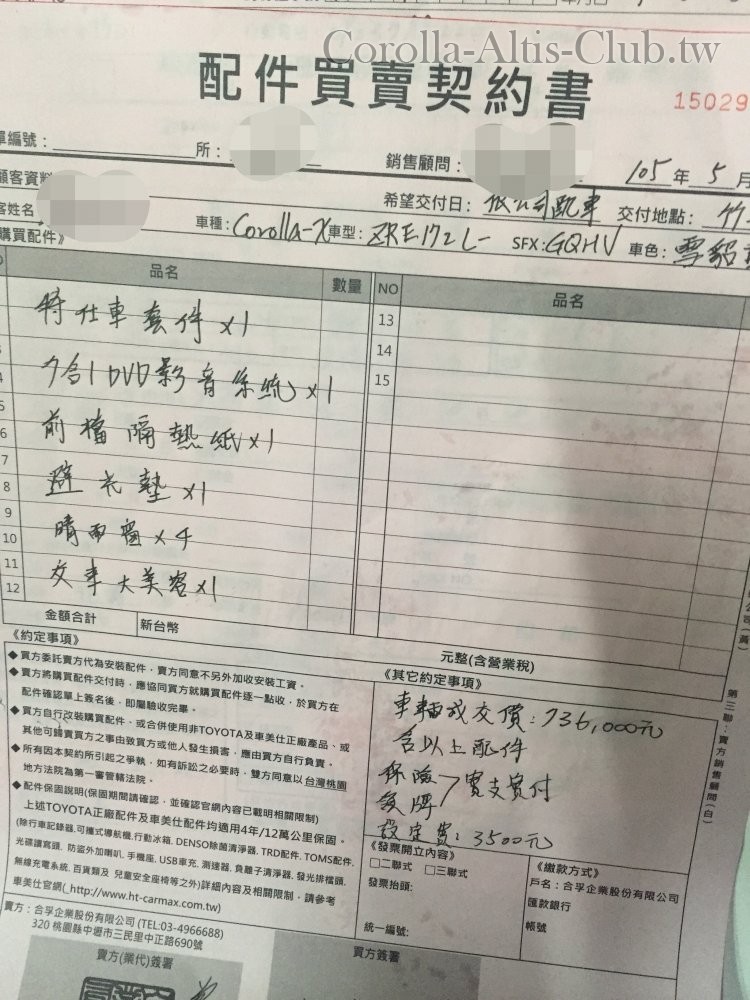 Corolla-Altis-Club.tw
配件買賣契約書
15029
單編號：
所：
銷售顧問：
105年5月
顧客資料
希望交付日：依公司配車 交付地點：竹
客姓名
車種：Corolla-X 車型：ZRE172L- SFX：GQHV 車色：雪
購買配件》
品名 數量 NO 品名
特仕車套件x1
13
14
7合1DVD影音系統x1
15
前檔隔熱紙x1
避光墊x1
晴雨窗x4
交車大美容x1
5
6
7
8
9
10
11
12
金額合計 新台幣 元整(含營業稅)
《約定事項》
◆買方委託賣方代為安裝配件，賣方同意不另外加收安裝工資。
◆買方將購買配件交付時，應協同買方就購買配件逐一點收，於買方在
配件確認單上簽名後，即屬驗收完畢。
◆買方自行改裝購買配件、或合併使用非TOYOTA及車美仕正廠產品、或
其他可歸責買方之事由致買方或他人發生損害，應由買方自行負責。
◆所有因本契約所引起之爭執，如有訴訟之必要時，雙方同意以台灣桃園
地方法院為第一審管轄法院。
◆配件保固說明(保固期間請確認，並確認官網內容已載明相關限制)
上述TOYOTA正廠配件及車美仕配件均適用4年/12萬公里保固。
(除行車記錄器.可攜式導航機.行動冰箱. DENSO除菌清淨器. TRD配件. TOMS配件.
光碟讀寫頭. 防盜外加喇叭. 手機座. USB車充. 測速器. 負離子清淨器. 發光排檔頭.
無線充電系統. 百貨類及 兒童安全座椅等之外)詳細內容及相關限制，請參考
車美仕官網(_http://www.ht-carmax.com.tw)
賣方：合孚企業股份有限公司 (TEL:03-4966688)
320 桃園縣中壢市三民里中正路690號
賣方(業代)簽署
《其它約定事項》
車輛成交價：736,000元
含以上配件
保險
領牌
實支實付
設定費：3500元
《發票開立內容》
□二聯式 □三聯式
發票抬頭：
統一編號：
《繳款方式》
戶名：合孚企業股份有限公司
匯款銀行
帳號
買方簽署
第三聯：賣方銷售顧問(白)